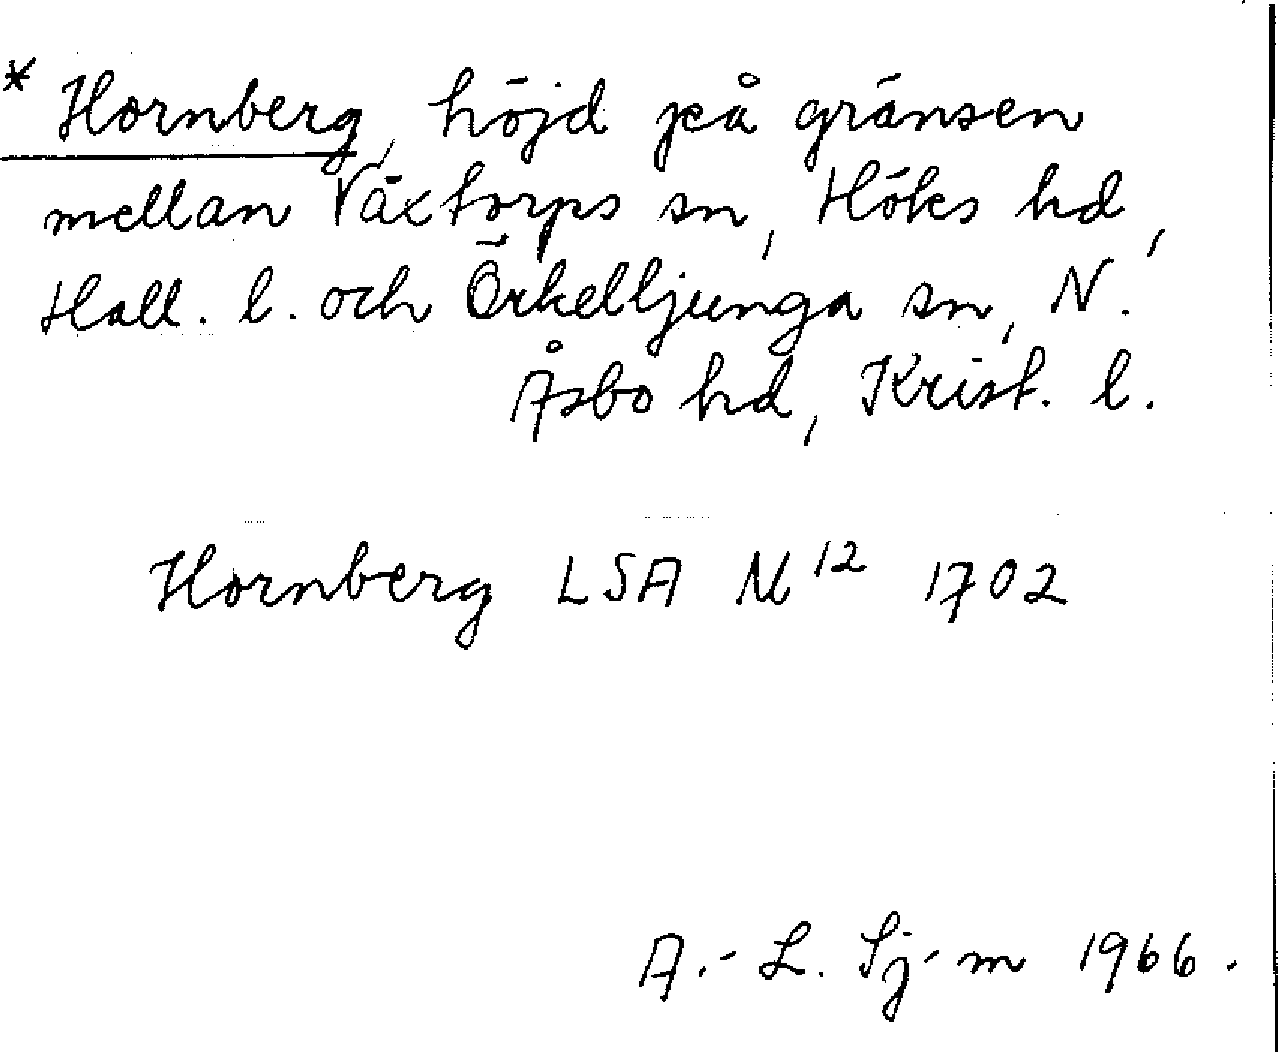 * Hornberg, höjd på gränsen
mellan Växtorps sn, Höks hd,
Hall. l. och Örkelljunga sn, N.
Åsbo hd, Krist. l.
Hornberg LSA N¹² 1702
A.-L. Sj-m 1966.